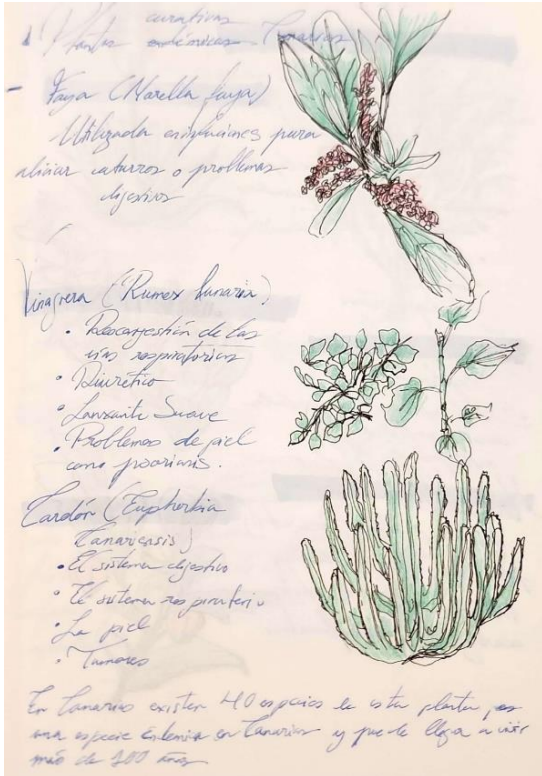 curativas
Plantas endémicas Canarias
- Faya (Morella faya)
- Utilizada en para
aliviar catarros o problemas
digestivos
Vinagrera (Rumex lunaria)
• Descongestión de las
vías respiratorias
• Diurético
• Laxante Suave
• Problemas de piel
como psoriasis.
Cardón (Euphorbia
Canariensis)
• El sistema digestivo
• El sistema respiratorio
• La piel
• Tumores
En Canarias existen 40 especies de esta planta, es
una especie endémica en Canarias y puede llegar a vivir
más de 100 años